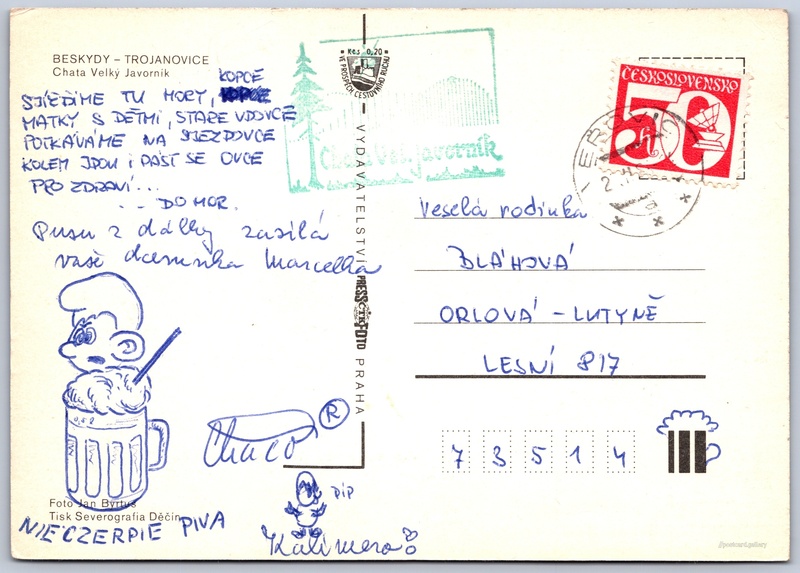 BESKYDY – TROJANOVICE
Chata Velký Javorník
KOPCE
SJÍŽDÍME TU HORY,
MATKY S DĚTMI, STARÉ VDOVCE
POTKÁVÁME NA SJEZDOVCE
KOLEM JDOU I PÁST SE OVCE
PRO ZDRAVÍ...
... DO HOR.
Pusu z dálky zasílá
vaše Marcelka
Chaco ®
PÍP
Kalimero
Foto Jan Byrtus
Tisk Severografia Děčín
NIE CZERPIE PIVA
Kčs 0,20
VE PROSPĚCH CESTOVNÍHO RUCHU
Chata Vel. Javorník
VYDAVATELSTVÍ PRESSFOTO PRAHA
ČTK
ČESKOSLOVENSKO
50 h
Veselá rodinka
BLÁHOVÁ
ORLOVÁ – LUTYNĚ
LESNÍ 817
7 3 5 1 4
//postcard.gallery